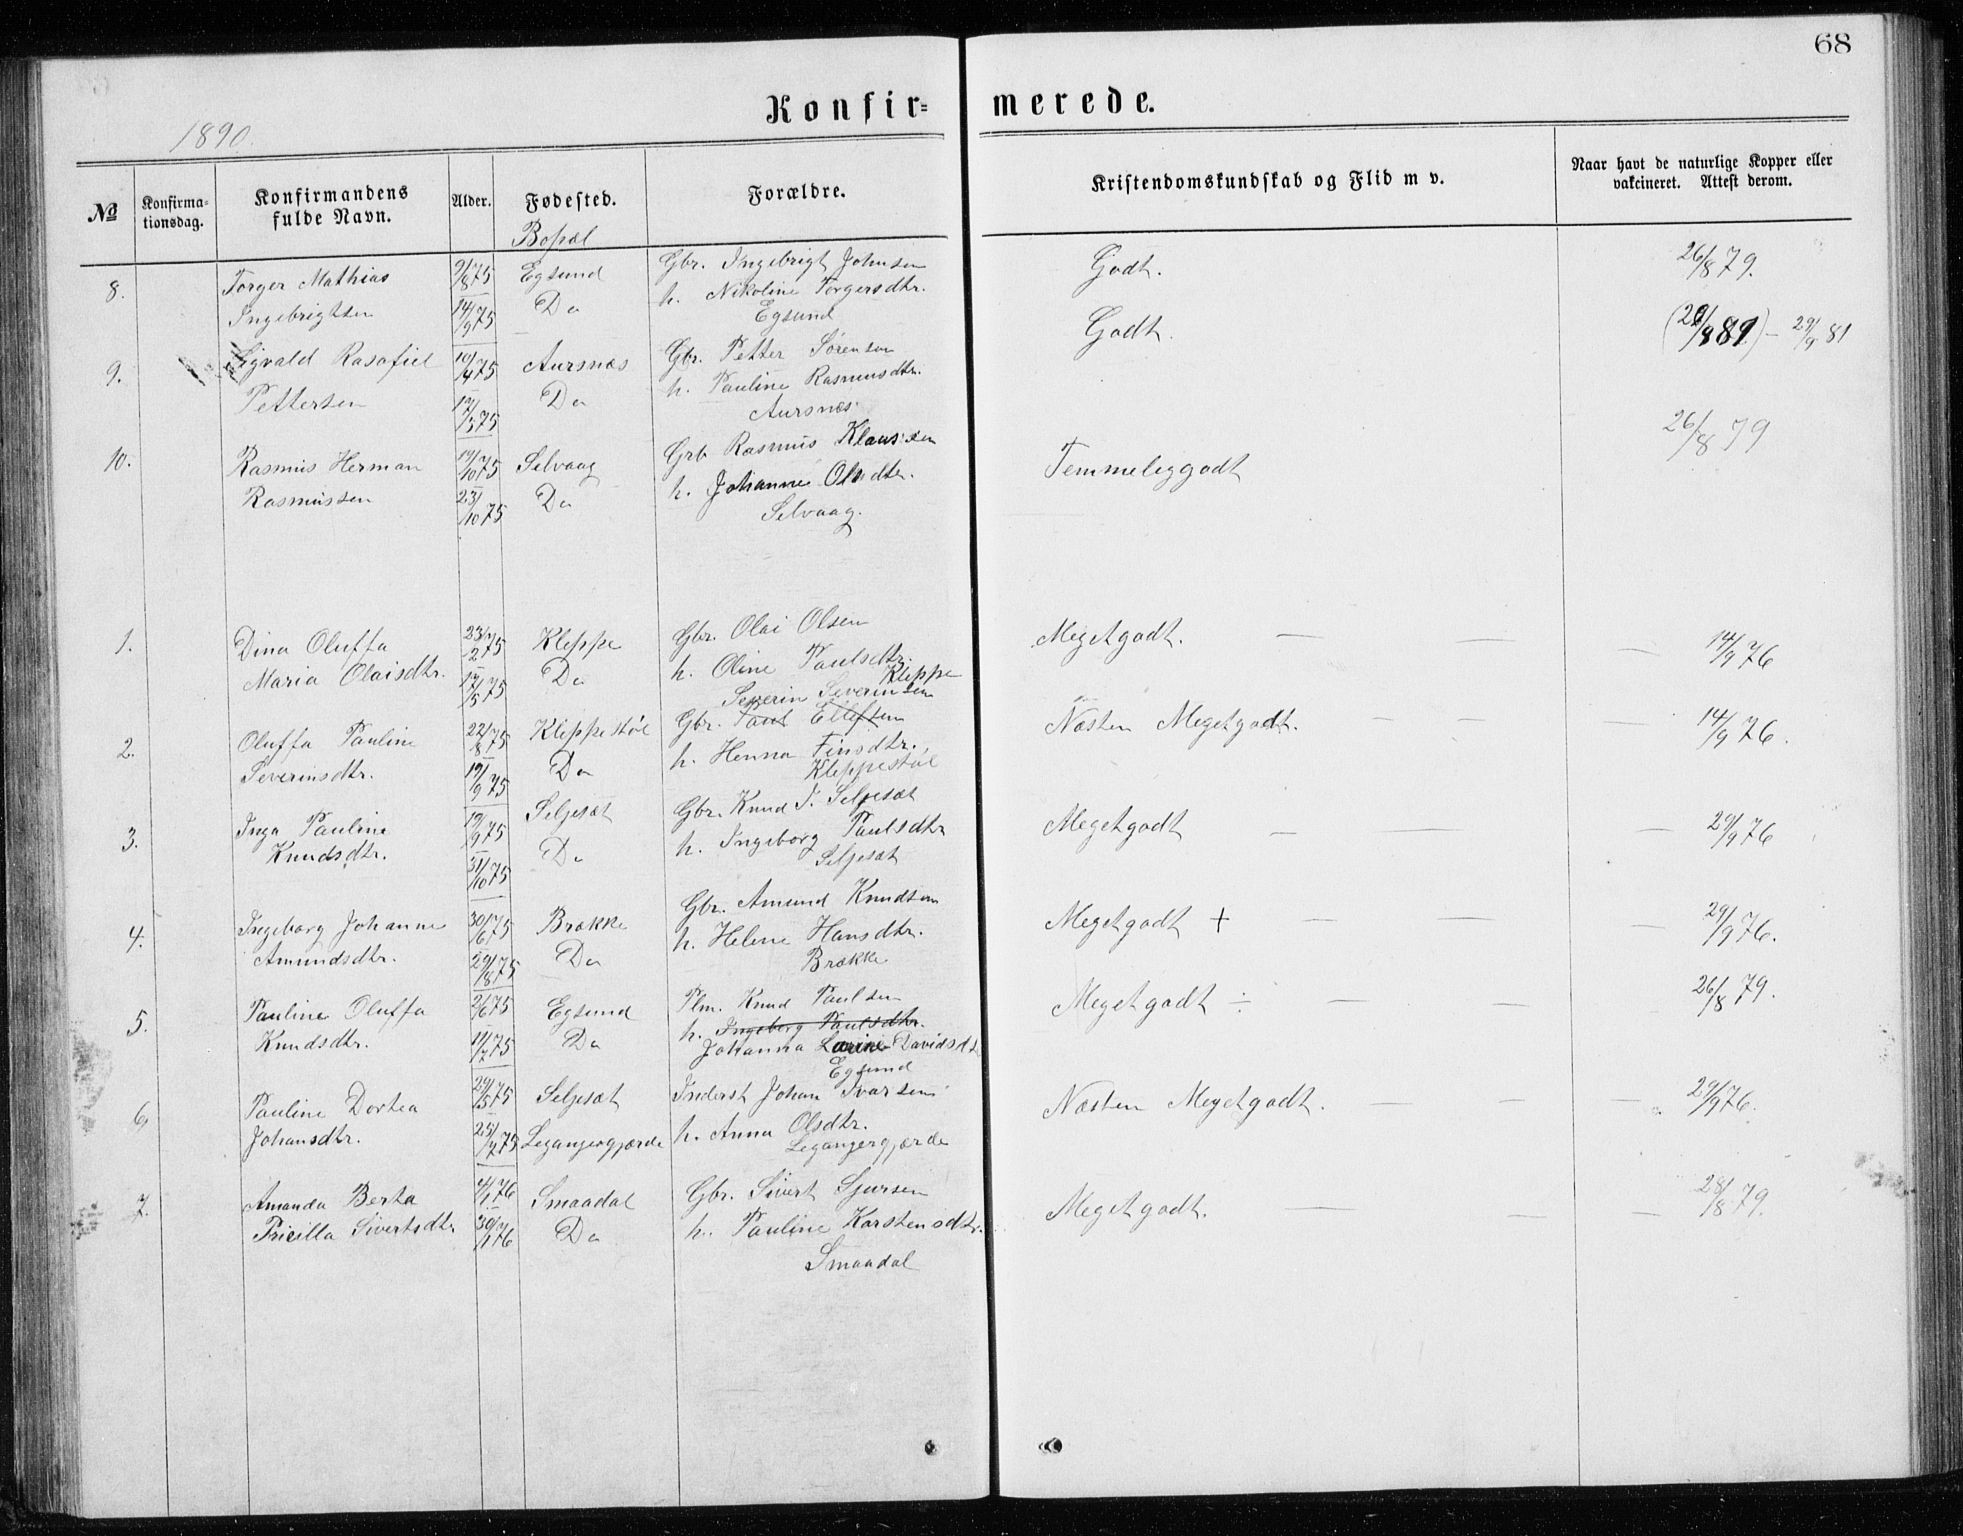 68
Konfir= merede.
1890.
No Konfirma-tionsdag. Konfirmandens fulde Navn. Alder. Fødested. Forældre. Kristendomskundskab og Flid m v. Naar havt de naturlige Kopper eller vakcineret. Attest derom.
Bopæl
8. Torger Mathias 9/8 75 Egsund Gbr. Ingebrigt Johnsen Godt. 26/8 79.
Ingebrigtsen 14/9 75 Do h. Nikoline Torgersdtr.
Egsund
9. Sigvald Rasafiel 10/4 75 Aursnæs Gbr. Petter Sørensen Godt. 29/9 81
Pettersen 17/5 75 Do h. Pauline Rasmusdtr.
Aursnæs
10. Rasmus Herman 19/10 75 Selvaag Grb Rasmus Klaussen Temmeliggodt 26/8 79
Rasmussen 23/10 75 Do h. Johanne Olsdtr.
Selvaag.
1. Dina Oluffa 23/2 75 Kleppe Gbr. Olai Olsen Megetgodt. — — — 14/9 76
Maria Olaisdtr. 17/5 75 Do h. Oline Paulsdtr.
Kleppe
Severin Severinsen
2. Oluffa Pauline 22/8 75 Kleppestøl Gbr. Paul Ellefsen Næsten Megetgodt. — — — 14/9 76.
Severinsdtr. 19/9 75 Do h. Henna Finsdtr.,
Kleppestøl
3. Inga Pauline 19/9 75 Seljesæt Gbr. Knud T. Seljesæt Megetgodt — — — 29/9 76
Knudsdtr. 31/10 75 Do h. Ingeborg Paulsdtr
Seljesæt
4. Ingeborg Johanne 30/6 75 Brække Gbr. Amund Knudsen Megetgodt + — — — 29/9 76.
Amundsdtr. 29/8 75 Do h. Helene Hansdtr.
Brække
5. Pauline Oluffa 2/6 75 Egsund Plm. Knud Paulsen Megetgodt ÷ — — 26/8 79.
Knudsdtr. 11/7 75 Do h. Ingeborg Paulsdtr.
Johanna Larine Davidsdt
Egsund
6, Pauline Dortea 29/5 75 Seljesæt Inderst Johan Ivarsen Næsten Megetgodt. — — — 29/9 76.
Johansdtr. 25/7 75 Legangergjærde h. Anna Olsdtr.
Legangergjærde
7. Amanda Berta 4/1 76 Smaadal Gbr. Sivert Sjursen Megetgodt. — — — 28/8 79.
Pricilla Sivertsdtr 30/1 76 Do h. Pauline Karstensdtr.
Smaadal